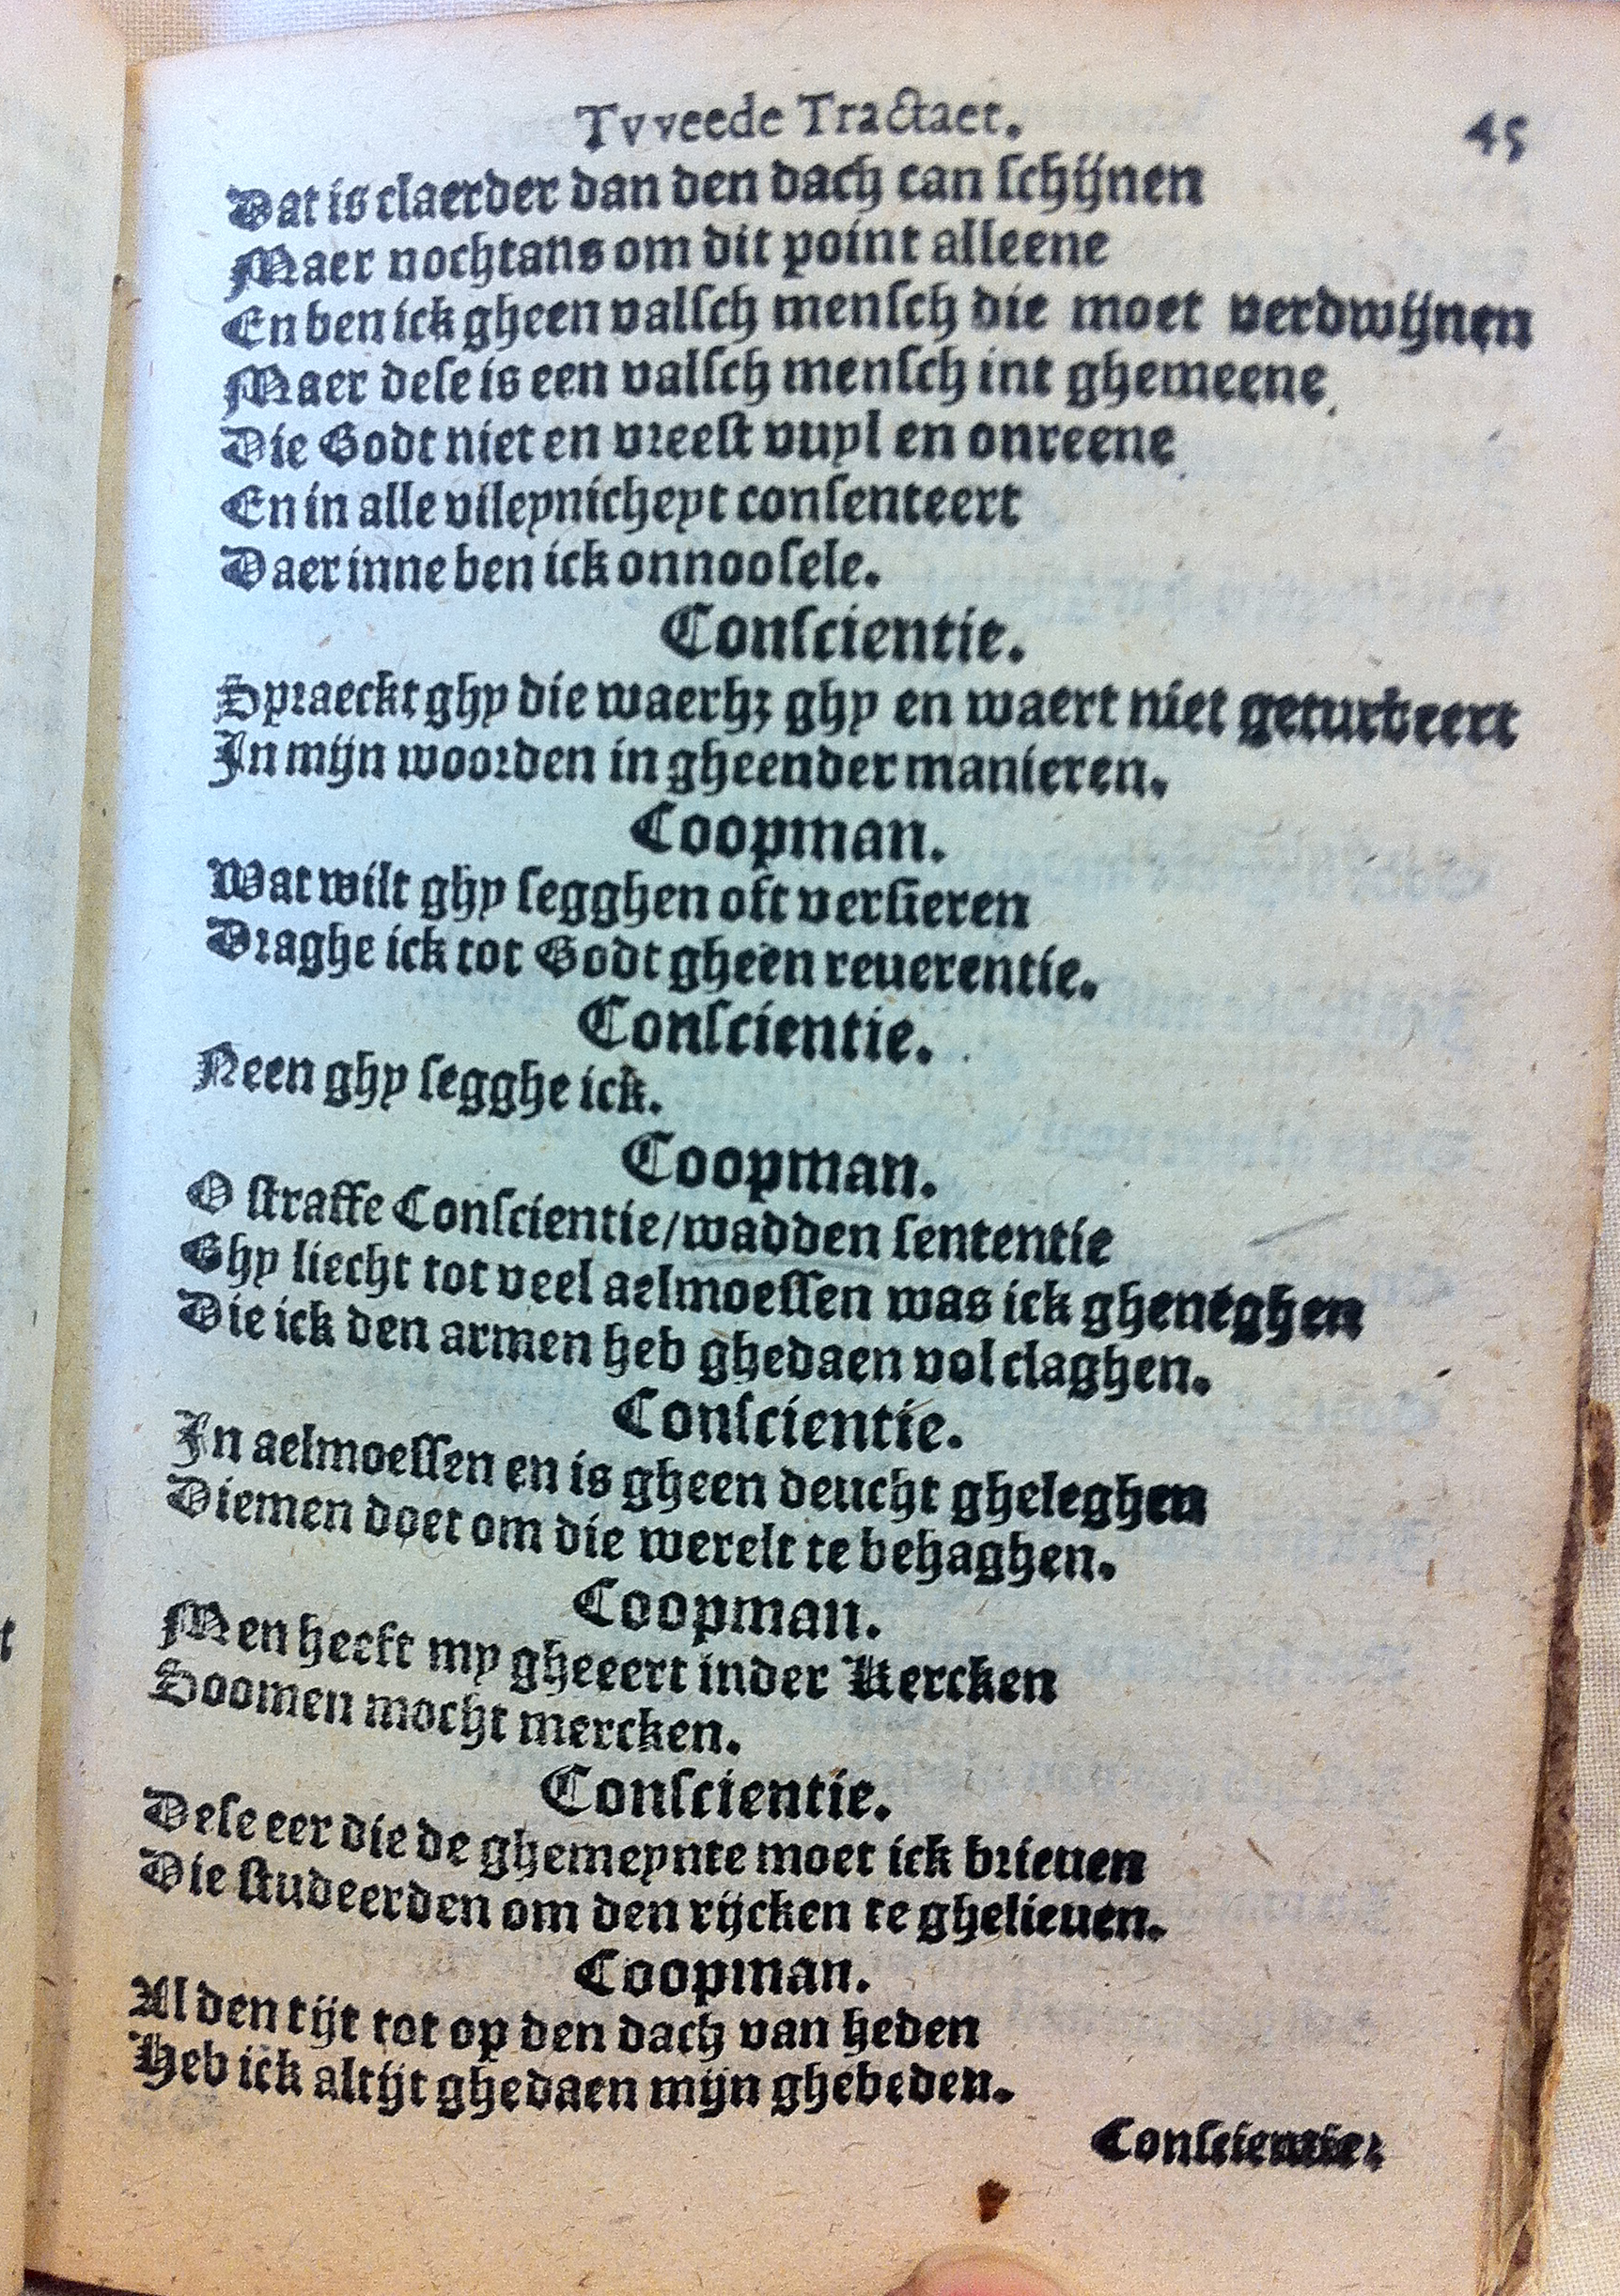 Tvveede Tractaet.
45
Dat is claerder dan den dach can ſchijnen
Maer nochtans om dit point alleene
En ben ick gheen valſch menſch die moet verdwijnen
Maer deſe is een valſch menſch int ghemeene
Die Godt niet en vreeſt vuyl en onreene
En in alle vileynicheyt conſenteert
Daer inne ben ick onnooſele.
Conſcientie.
Spraeckt ghy die waerhꝫ ghy en waert niet geturbeert
In mijn woorden in gheender manieren.
Coopman.
Wat wilt ghy ſegghen oft verſieren
Draghe ick tot Godt gheen reuerentie.
Conſcientie.
Neen ghy ſegghe ick.
Coopman.
O ſtraffe Conſcientie/wadden ſententie
Ghy liecht tot veel aelmoeſſen was ick gheneghen
Die ick den armen heb ghedaen vol claghen.
Conſcientie.
In aelmoeſſen en is gheen deucht gheleghen
Diemen doet om die werelt te behaghen.
Coopman.
Men heeft my gheeert inder Kercken
Soomen mocht mercken.
Conſcientie.
Deſe eer die de ghemeynte moet ick brieuen
Die ſtudeerden om den rijcken te ghelieuen.
Coopman.
Al den tijt tot op den dach van heden
Heb ick altijt ghedaen mijn ghebeden.
Conſcientie.